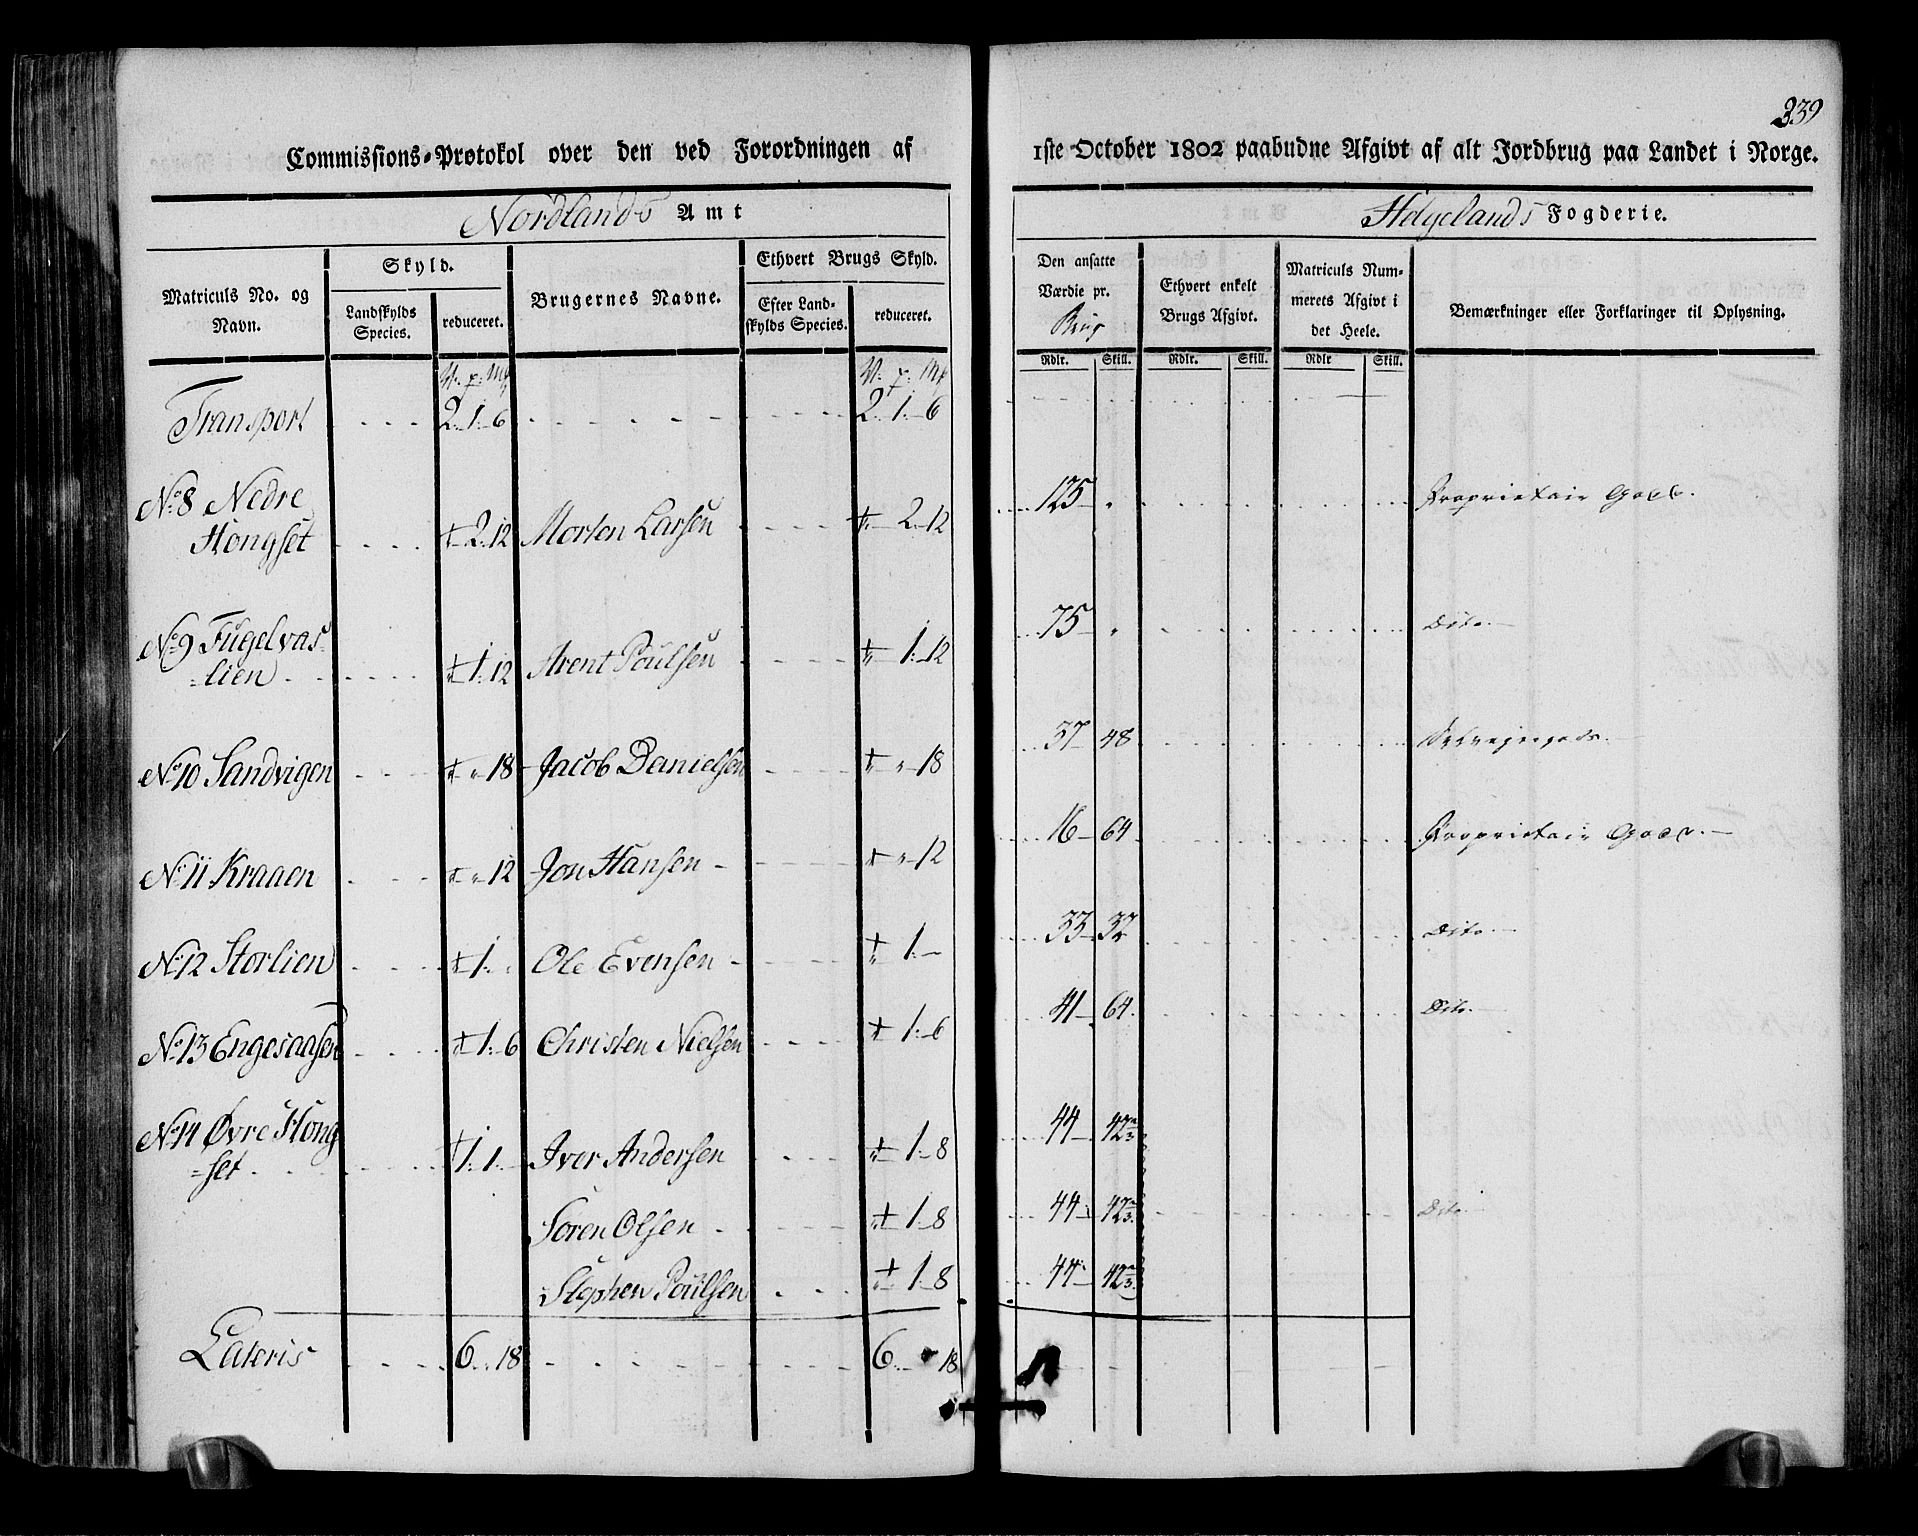 339
Commissions-Protokol over den ved Forordningen af 1ste October 1802 paabudne Afgivt af alt Jordbrug paa Landet i Norge.
Nordlands Amt
Helgelands Fogderie.
Matriculs No. og Navn.
Skyld.
Landskylds Species.
reduceret.
Brugernes Navne.
Ethvert Brugs Skyld.
Efter Landskylds Species.
reduceret.
Den ansatte Værdie pr. Brug
Ethvert enkelt Brugs Afgivt.
Matriculs Nummerets Afgivt i det Heele.
Bemærkninger eller Forklaringer til Oplysning.
Rdlr. Skill. Rdlr. Skill. Rdlr Skill.
Transport 2. 1. 6 2. 1. 6
No 8 Nedre
Hongset 2. 12 Morten Larsen 2. 12 125 Proprietair Gods.
No 9 Fugelvas=
=lien 1. 12 Arent Poulsen 1. 12 75 Dito.
No 10 Sandvigen 18 Jacob Danielsen 18 37 48 Selveiergods.
No 11 Kraaen 12 Jon Hansen 12 16 64 Proprietair Gods.
No 12 Storlien 1. Ole Evensen 1. 33 32 Dito.
No 13 Engesaasen 1. 6 Christen Nielsen 1. 6 41 64 Dito.
No 14 Øvre Hong
=set 1. 1. Iver Andersen 1. 8 44 42⅔
Søren Olsen 1. 8 44 42⅔ Dito
Stephen Poulsen 1. 8 44 42⅔
Lateris 6. 18 6. 18